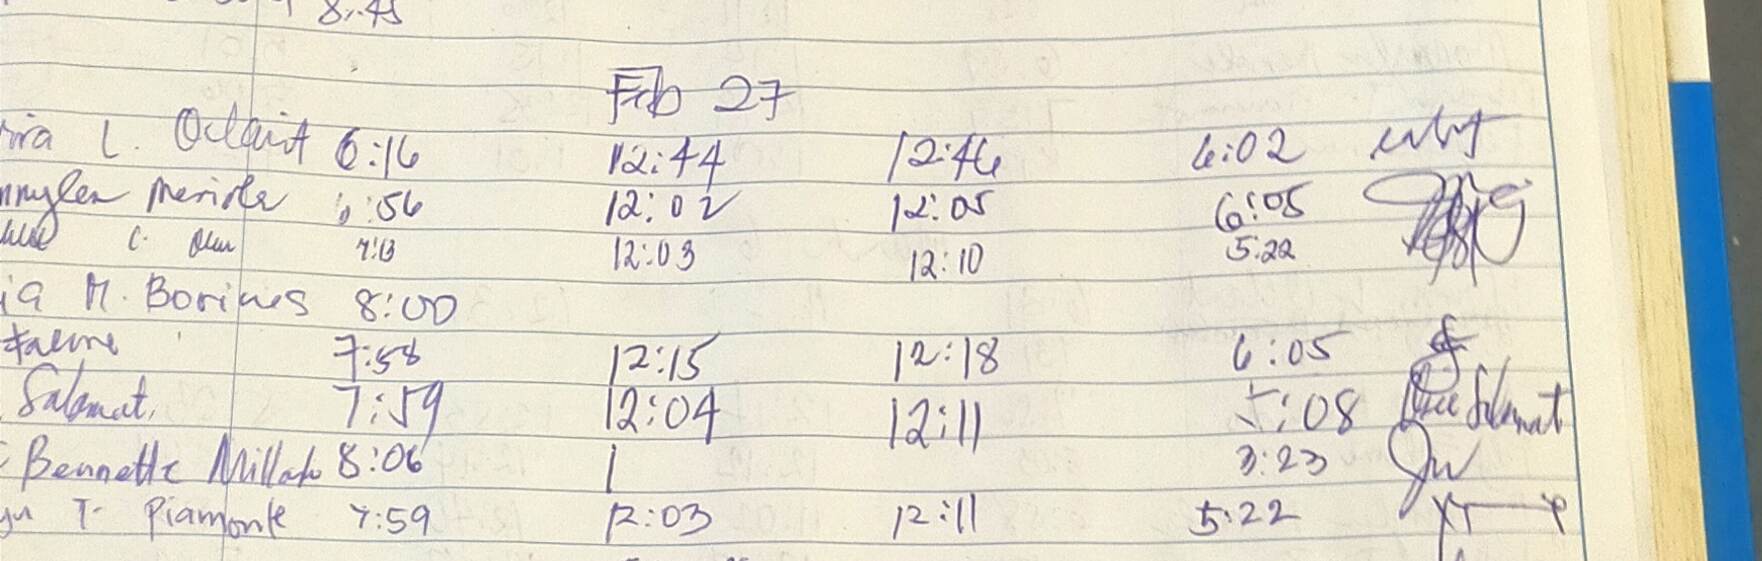 8:45
Feb 27
L. Oclarit 6:16 12:44 12:46 6:02
Meriola :56 12:02 12:05 6:05
C. 7:13 12:03 12:10 5:22
ia M. Borines 8:00
7:58 12:15 12:18 6:05
Salamat, 7:59 12:04 12:11 5:08 Salamat
Bennette Millan 8:06 3:23
T. Piamonte 7:59 12:03 12:11 5:22